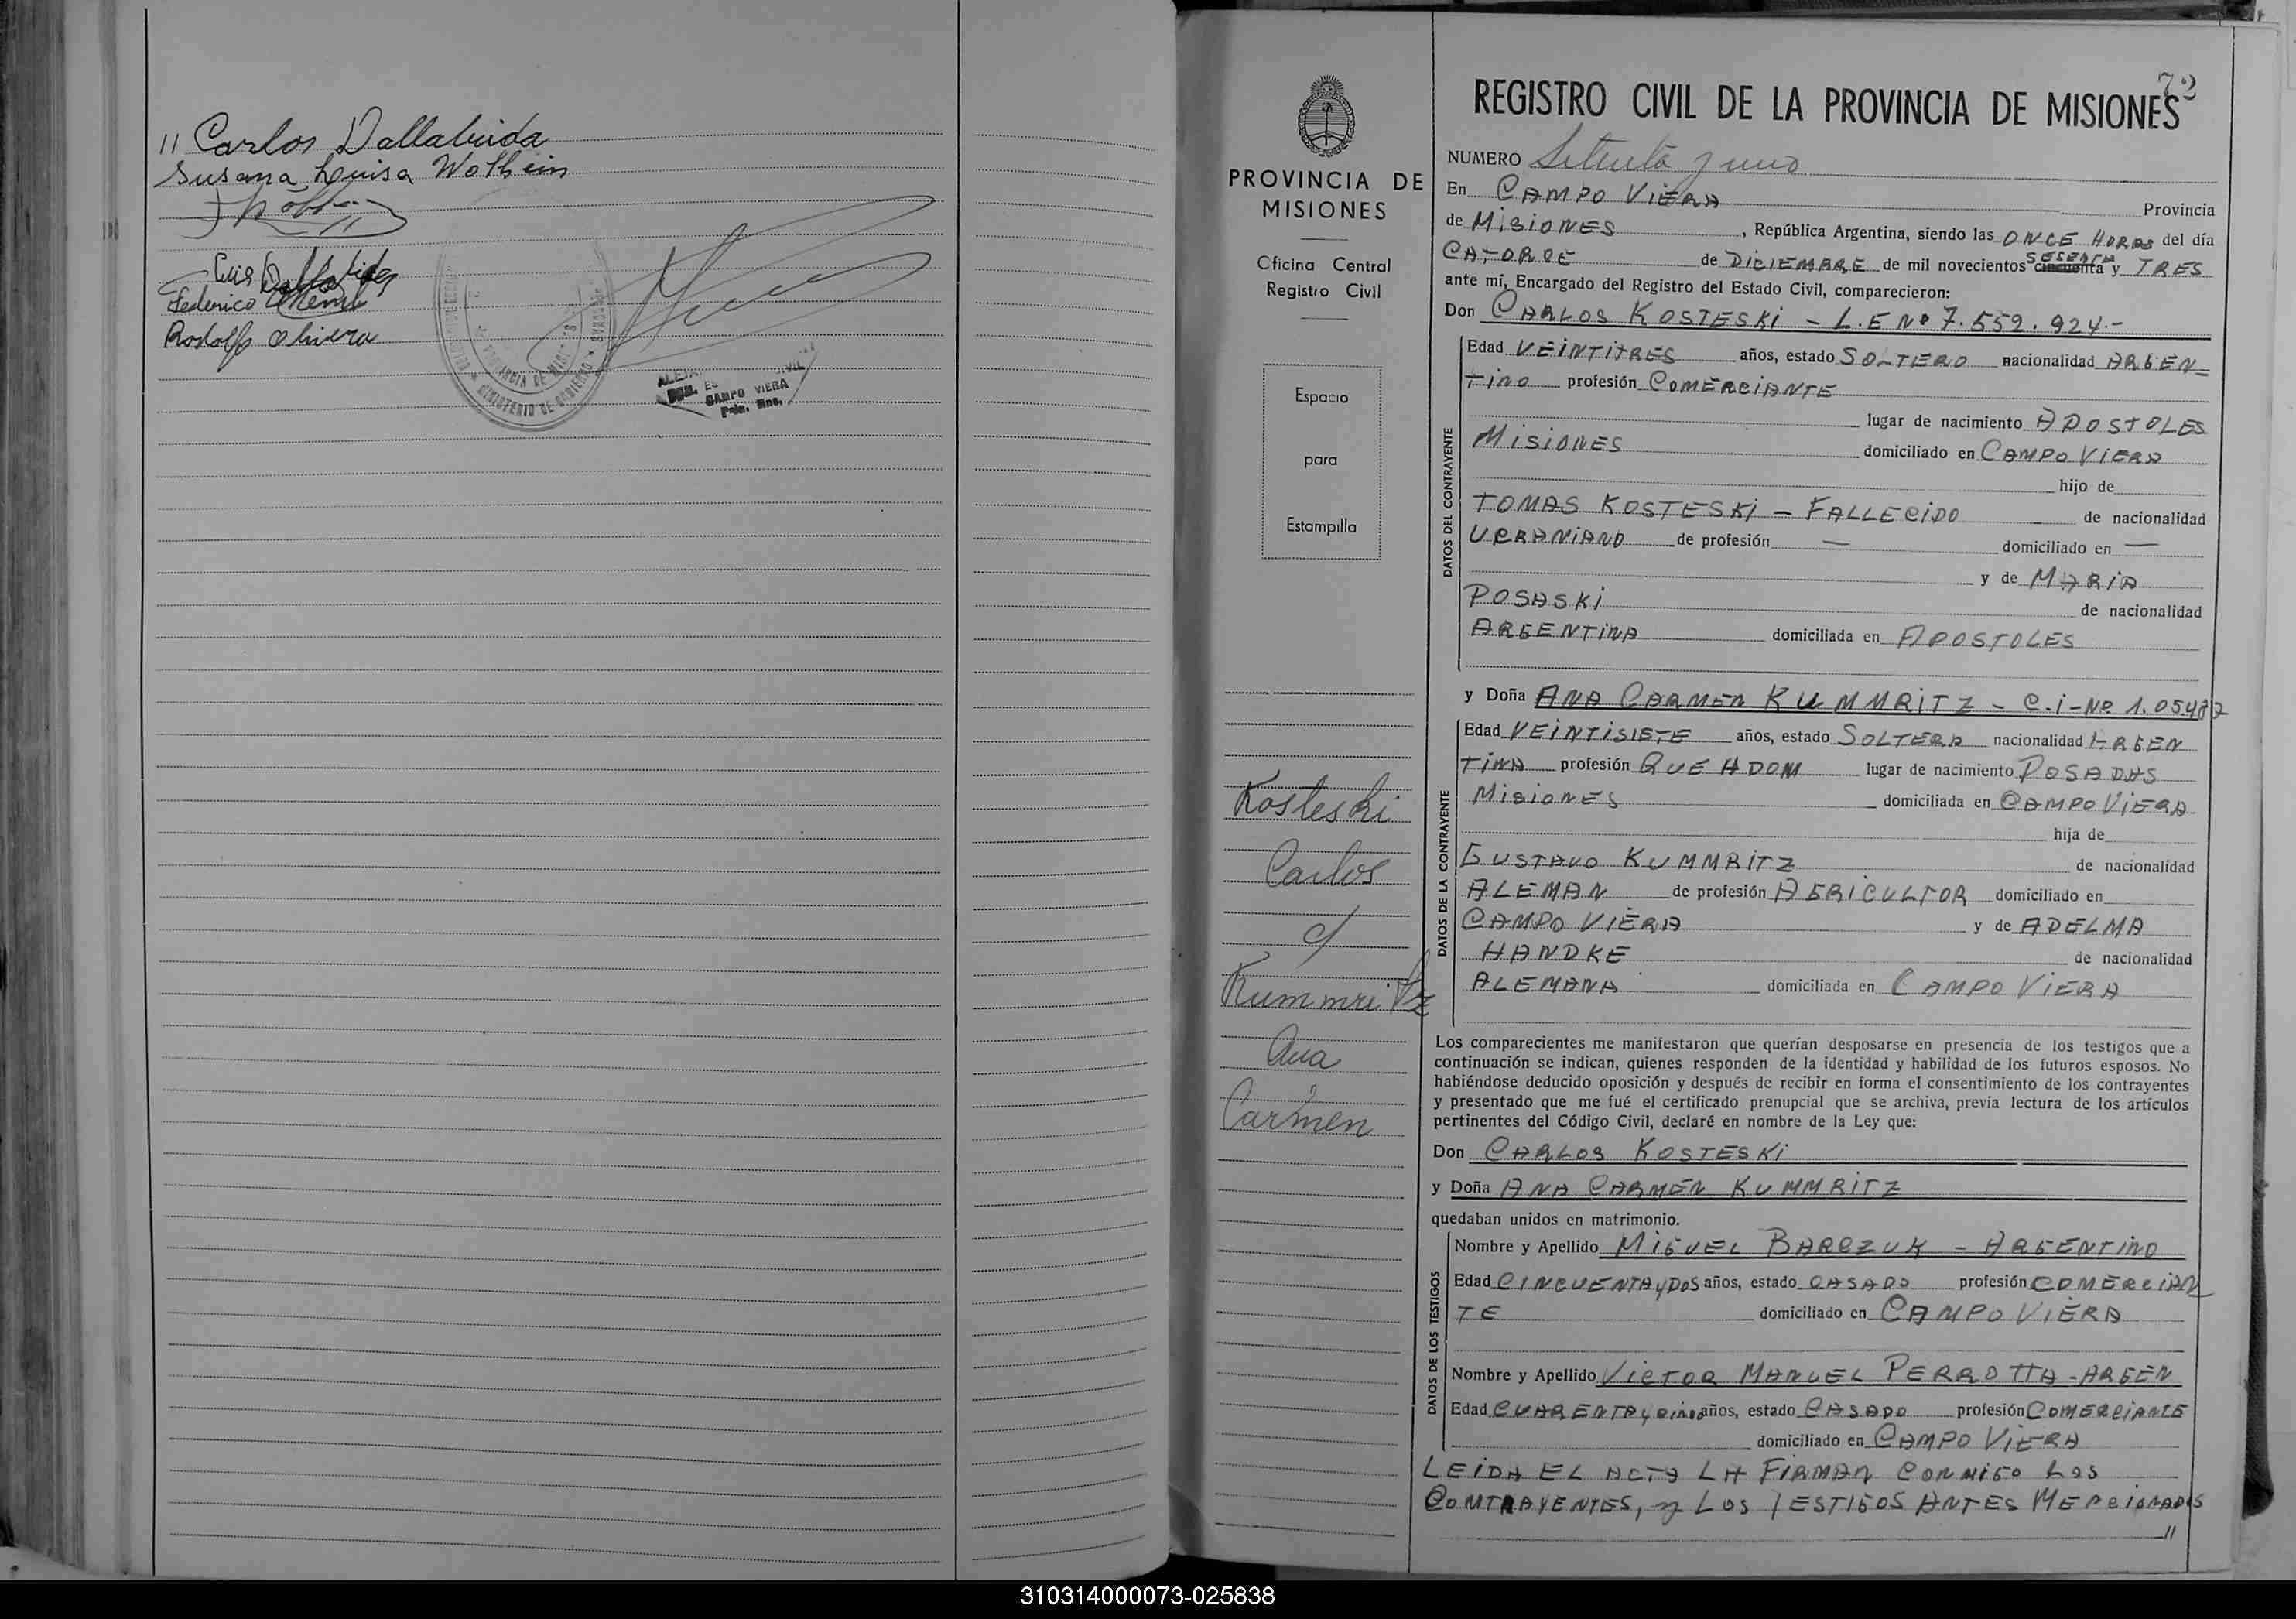 11 Carlos Dallabrida
Susana Luisa Wothein
Luis Dallabrida
Federico
Rodolfo Olivera
MINISTERIO DE GOBIERNO
PROVINCIA DE
CAMPO VIERA
Pcia. Mnes.
PROVINCIA DE
MISIONES
Oficina Central
Registro Civil
Espacio
para
Estampilla
Kosteski
Carlos
c/
Kummritz
Ana
Carmen
72
REGISTRO CIVIL DE LA PROVINCIA DE MISIONES
NUMERO Setenta y uno
En CAMPO VIERA Provincia
de MISIONES, República Argentina, siendo las ONCE HORAS del día
CATORCE de DICIEMBRE de mil novecientos cincuenta SESENTA y TRES
ante mí, Encargado del Registro del Estado Civil, comparecieron:
Don CARLOS KOSTESKI – L.E Nº 7.559.924.-
DATOS DEL CONTRAYENTE
Edad VEINTITRES años, estado SOLTERO nacionalidad ARGEN=
TINO profesión COMERCIANTE
lugar de nacimiento APOSTOLES
MISIONES domiciliado en CAMPO VIERA
hijo de
TOMAS KOSTESKI – FALLECIDO de nacionalidad
UCRANIANO de profesión — domiciliado en —
y de MARIA
POSASKI de nacionalidad
ARGENTINA domiciliada en APOSTOLES
y Doña ANA CARMEN KUMMRITZ – C.I – Nº 1.05.487
DATOS DE LA CONTRAYENTE
Edad VEINTISIETE años, estado SOLTERA nacionalidad ARGEN
TINA profesión QUE HDOM lugar de nacimiento POSADAS
MISIONES domiciliada en CAMPO VIERA
hija de
GUSTAVO KUMMRITZ de nacionalidad
ALEMAN de profesión AGRICULTOR domiciliado en
CAMPO VIERA y de ADELMA
HANDKE de nacionalidad
ALEMANA domiciliada en CAMPO VIERA
Los comparecientes me manifestaron que querían desposarse en presencia de los testigos que a
continuación se indican, quienes responden de la identidad y habilidad de los futuros esposos. No
habiéndose deducido oposición y después de recibir en forma el consentimiento de los contrayentes
y presentado que me fué el certificado prenupcial que se archiva, previa lectura de los artículos
pertinentes del Código Civil, declaré en nombre de la Ley que:
Don CARLOS KOSTESKI
y Doña ANA CARMEN KUMMRITZ
quedaban unidos en matrimonio.
DATOS DE LOS TESTIGOS
Nombre y Apellido MIGUEL BARCZUK – ARGENTINO
Edad CINCUENTA y DOS años, estado CASADO profesión COMERCIAN
TE domiciliado en CAMPO VIERA
Nombre y Apellido VICTOR MANUEL PERROTTA – ARGEN
Edad CUARENTA y CINCO años, estado CASADO profesión COMERCIANTE
domiciliado en CAMPO VIERA
LEIDA EL ACTA LA FIRMAN CONMIGO LOS
CONTRAYENTES, y LOS TESTIGOS ANTES MENCIONADOS
//
310314000073-025838